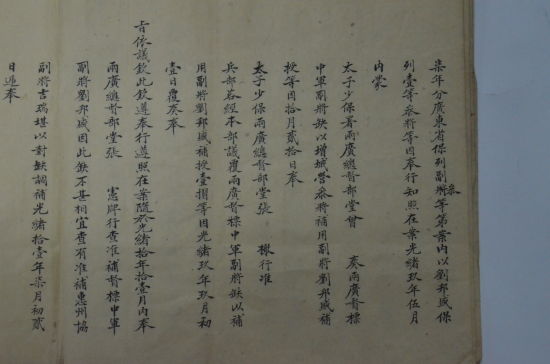 柒年分廣東省保列副參將等第叁案內以劉邦盛保
列壹等叅將等因奉行知照在案光緒玖年伍月
內蒙
太子少保署兩廣總督部堂曾　奏兩廣督標
中軍副將缺以增城營叅將補用副將劉邦盛補
授等因拾月貳拾日奉
太子少保兩廣總督部堂張　檄行准
兵部咨經本部議覆兩廣督標中軍副將缺以補
用副將劉邦盛補授壹摺等因光緒玖年玖月初
壹日覆奏奉
旨依議欽此欽遵奉行遵照在案隨於光緒拾年拾壹月內奉
兩廣總督部堂張　憲牌行查准補督標中軍
副將劉邦盛因此缺不甚相宜查有准補惠州協
副將吉瑞堪以對缺調補光緒拾壹年柒月初貳
日准奉